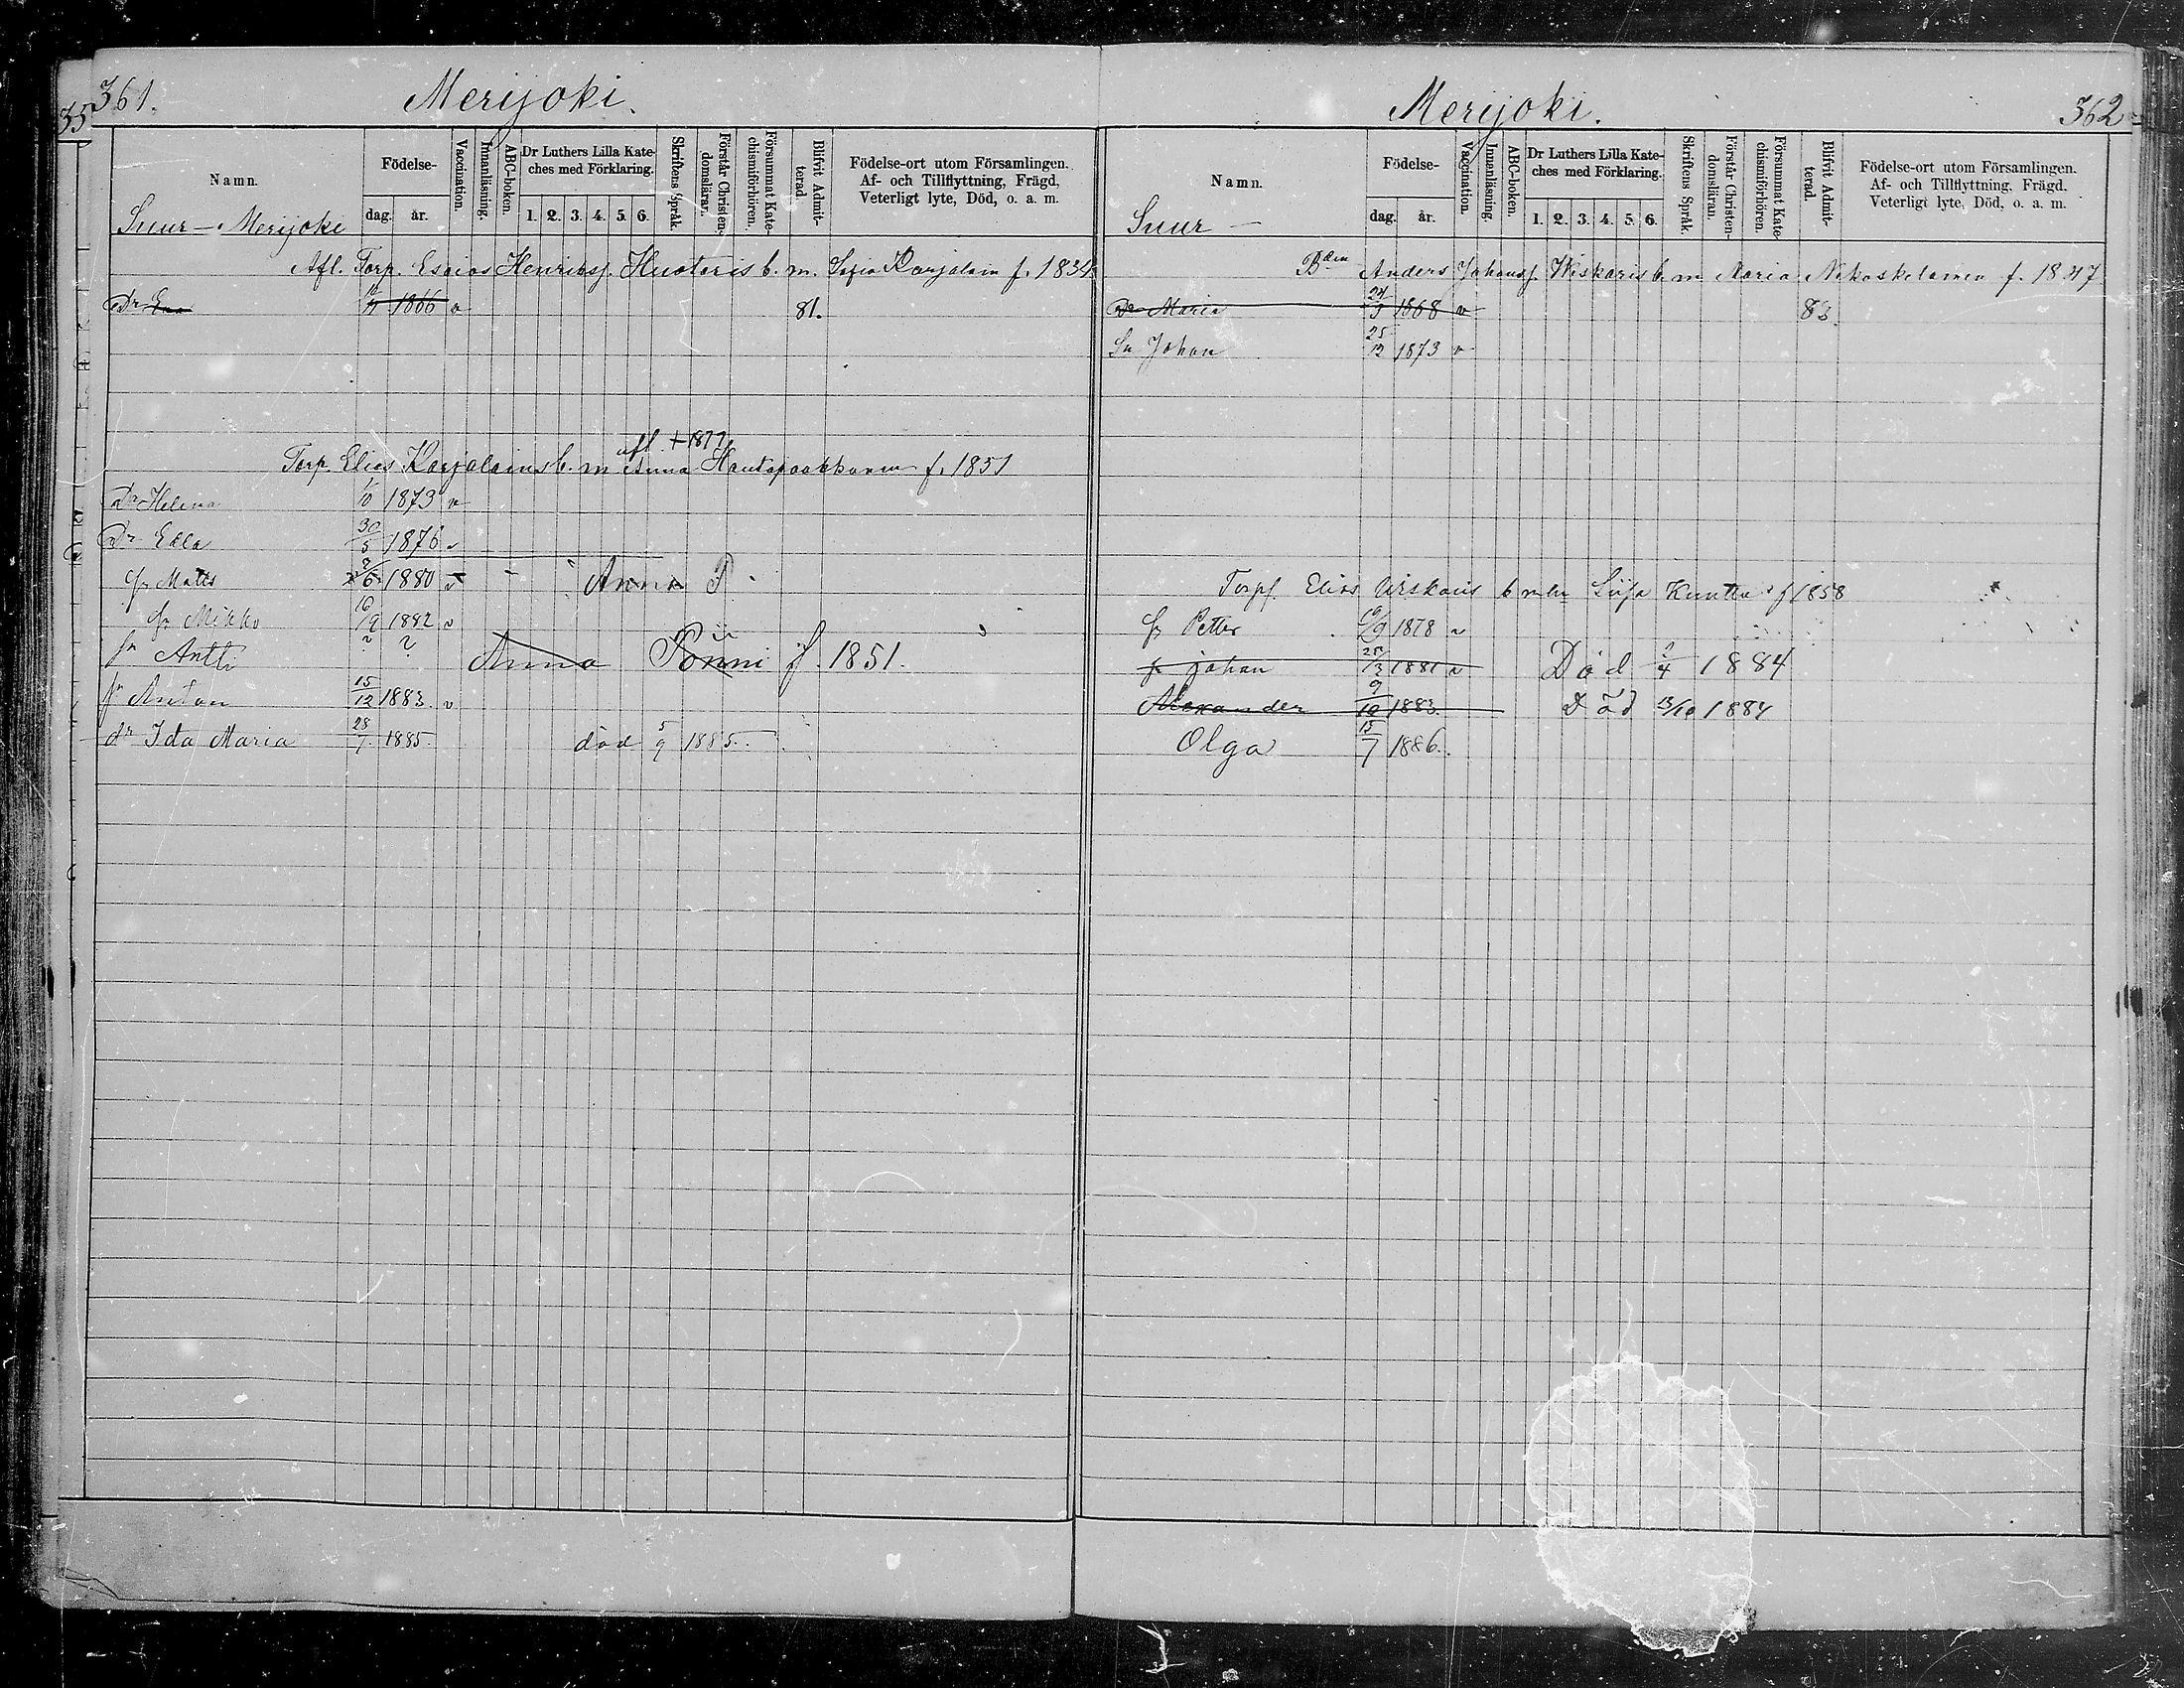 361.
Merijoki.
35
Namn.
Födelse-
dag. år.
Vaccination.
Innanläsning.
ABC-boken.
Dr Luthers Lilla Kate-
ches med Förklaring.
1. 2. 3. 4. 5. 6.
Skriftens Språk.
Förstår Christen-
domsläran.
Försummat Kate-
chismiförhören.
Blifvit Admit-
terad.
Födelse-ort utom Församlingen.
Af- och Tillflyttning, Frägd,
Veterligt lyte, Död, o. a. m.
Suur - Merijoki
Afl. Torp. Esaias Henrikss. b. m. Sofia Karjalain f. 1834
Dr Eva 1866 v 81.
afl. + 1877
Torp. Elias Karjalains b. m Anna Hautapaakkanen f. 1851
Dr Helena 1/10 1873 v
Dr Edla 30/5 1876 v
Matts 1880 v Anna P
Mikko 1882 v
Antti ? ? Anna f. 1851.
Anton 15/12 1883. v
dr Ida Maria 28/7 1885. död 5/9 1885.
Merijoki.
362
Namn.
Födelse-
dag. år.
Vaccination.
Innanläsning.
ABC-boken.
Dr Luthers Lilla Kate-
ches med Förklaring.
1. 2. 3. 4. 5. 6.
Skriftens Språk.
Förstår Christen-
domsläran.
Försummat Kate-
chismiförhören.
Blifvit Admit-
terad.
Födelse-ort utom Församlingen.
Af- och Tillflyttning, Frägd.
Veterligt lyte, Död, o. a. m.
Suur -
Bden Anders Johanss. Wiskaris b m Maria f. 1847
Dr Maria 24/3 1868 v 83.
Sn Johan 25/12 1873 v
Torp. Elias Wiskaris b m f 1858
Petter 1878 v
Johan 1881 v Död 1884
Alexander 9/10 1883. Död 13/10 1884
Olga 15/7 1886.